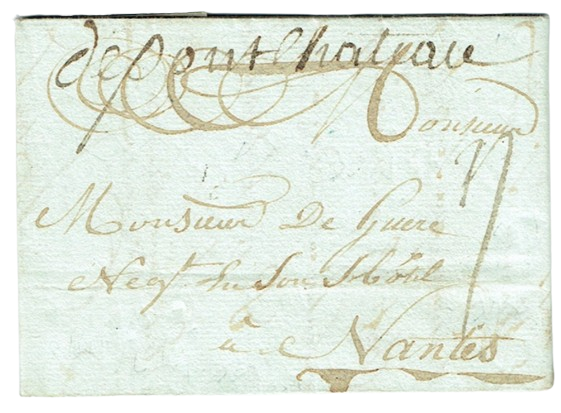 de pontchateau
Monsieur
Monsieur De Guere
Neg.t En Son hôtel
à Nantes